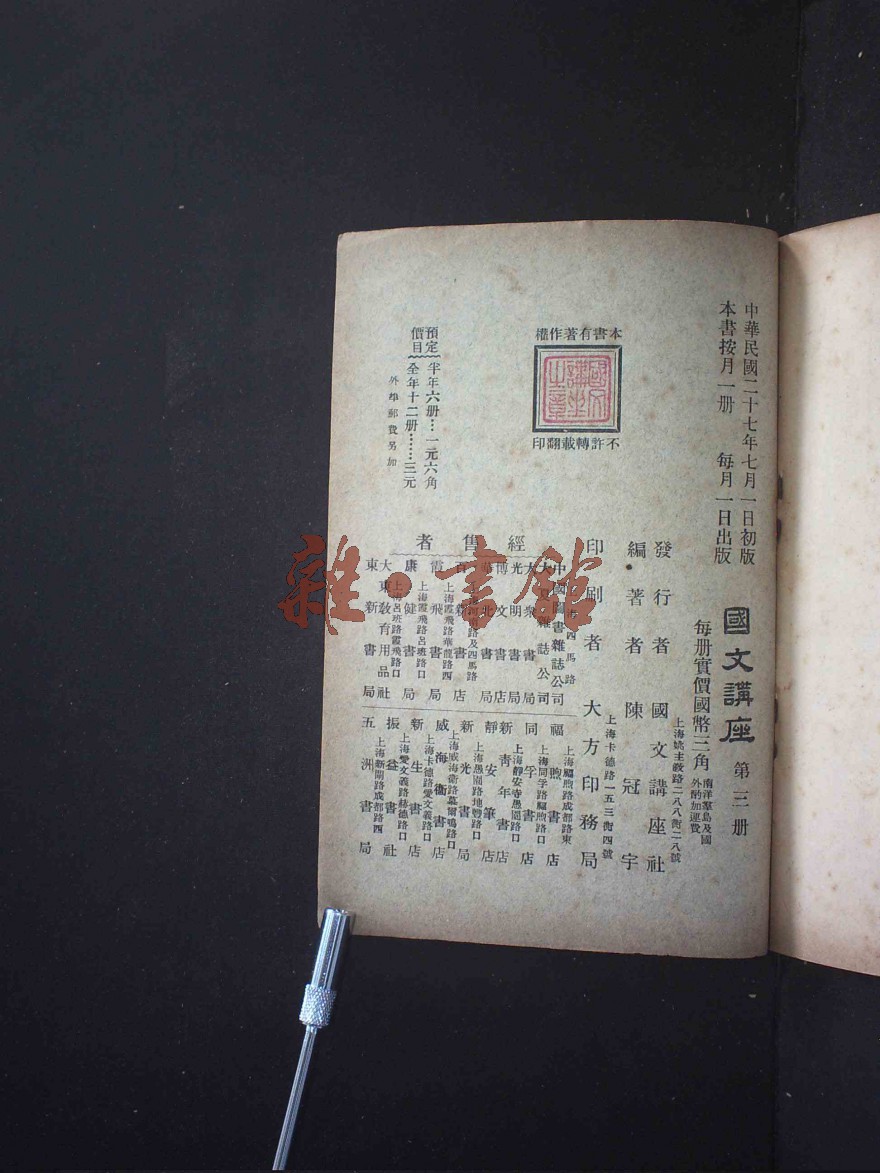 中華民國二十七年七月一日初版
本書按月一册　每月一日出版
國文講座 第三册
每册實價國幣三角
南洋羣島及國
外酌加運費
發行者　國文講座社
上海姚主敎路二八八衖二八號
編著者　陳冠宇
印刷者　大方印務局
上海卡德路一五三衖四號
本書有著作權
國文
講坐
之章
不許轉載翻印
預定
價目
半年六册…一元六角
全年十二册……三元
外埠郵費另加
經售者
中國圖書雜誌公司
雜誌公司
大衆書局
光明書局
博文書店
華北書局
百新書店
上海霞飛路華龍路西
霞飛書局
上海霞飛路呂班路口
康健書局
上海呂班路霞飛路口
大東敎育用品社
東新書局
上海福煦路成都路東
福煦書店
上海同孚路福煦路口
同孚書店
上海靜安寺愚園路口
新青年書店
靜安筆店
上海愚園路地豐路口
新光書局
上海威海衛路慕爾鳴路口
威海衛書店
上海卡德路愛文義路口
新生書店
上海愛文義路赫德路口
振益書社
上海新閘路成都路西
五洲書局
雜·書館